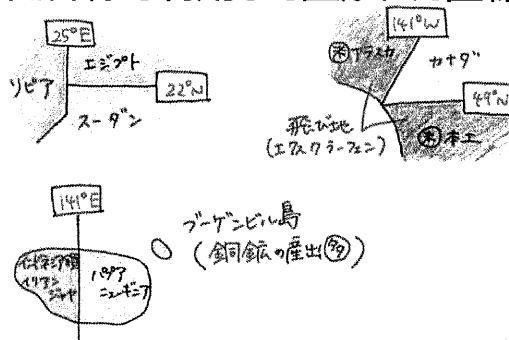 25°E
エジプト
リビア
22°N
スーダン
141°W
㊍アラスカ
カナダ
49°N
飛び地
(エクスクラーフェン)
㊍本土
141°E
ブーゲンビル島
(銅鉱の産出多)
インドネシア領
イリアン
ジャヤ
パプア
ニューギニア